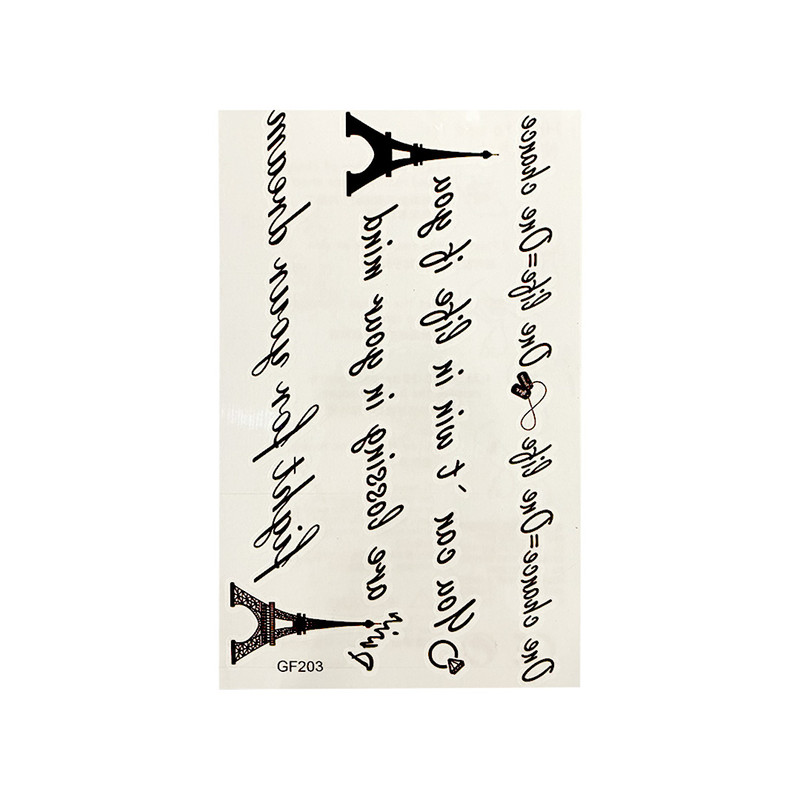 One chance=One life One life=One chance
You can 't win in life if you
are lossing in your mind
fight for your dreams
GF203